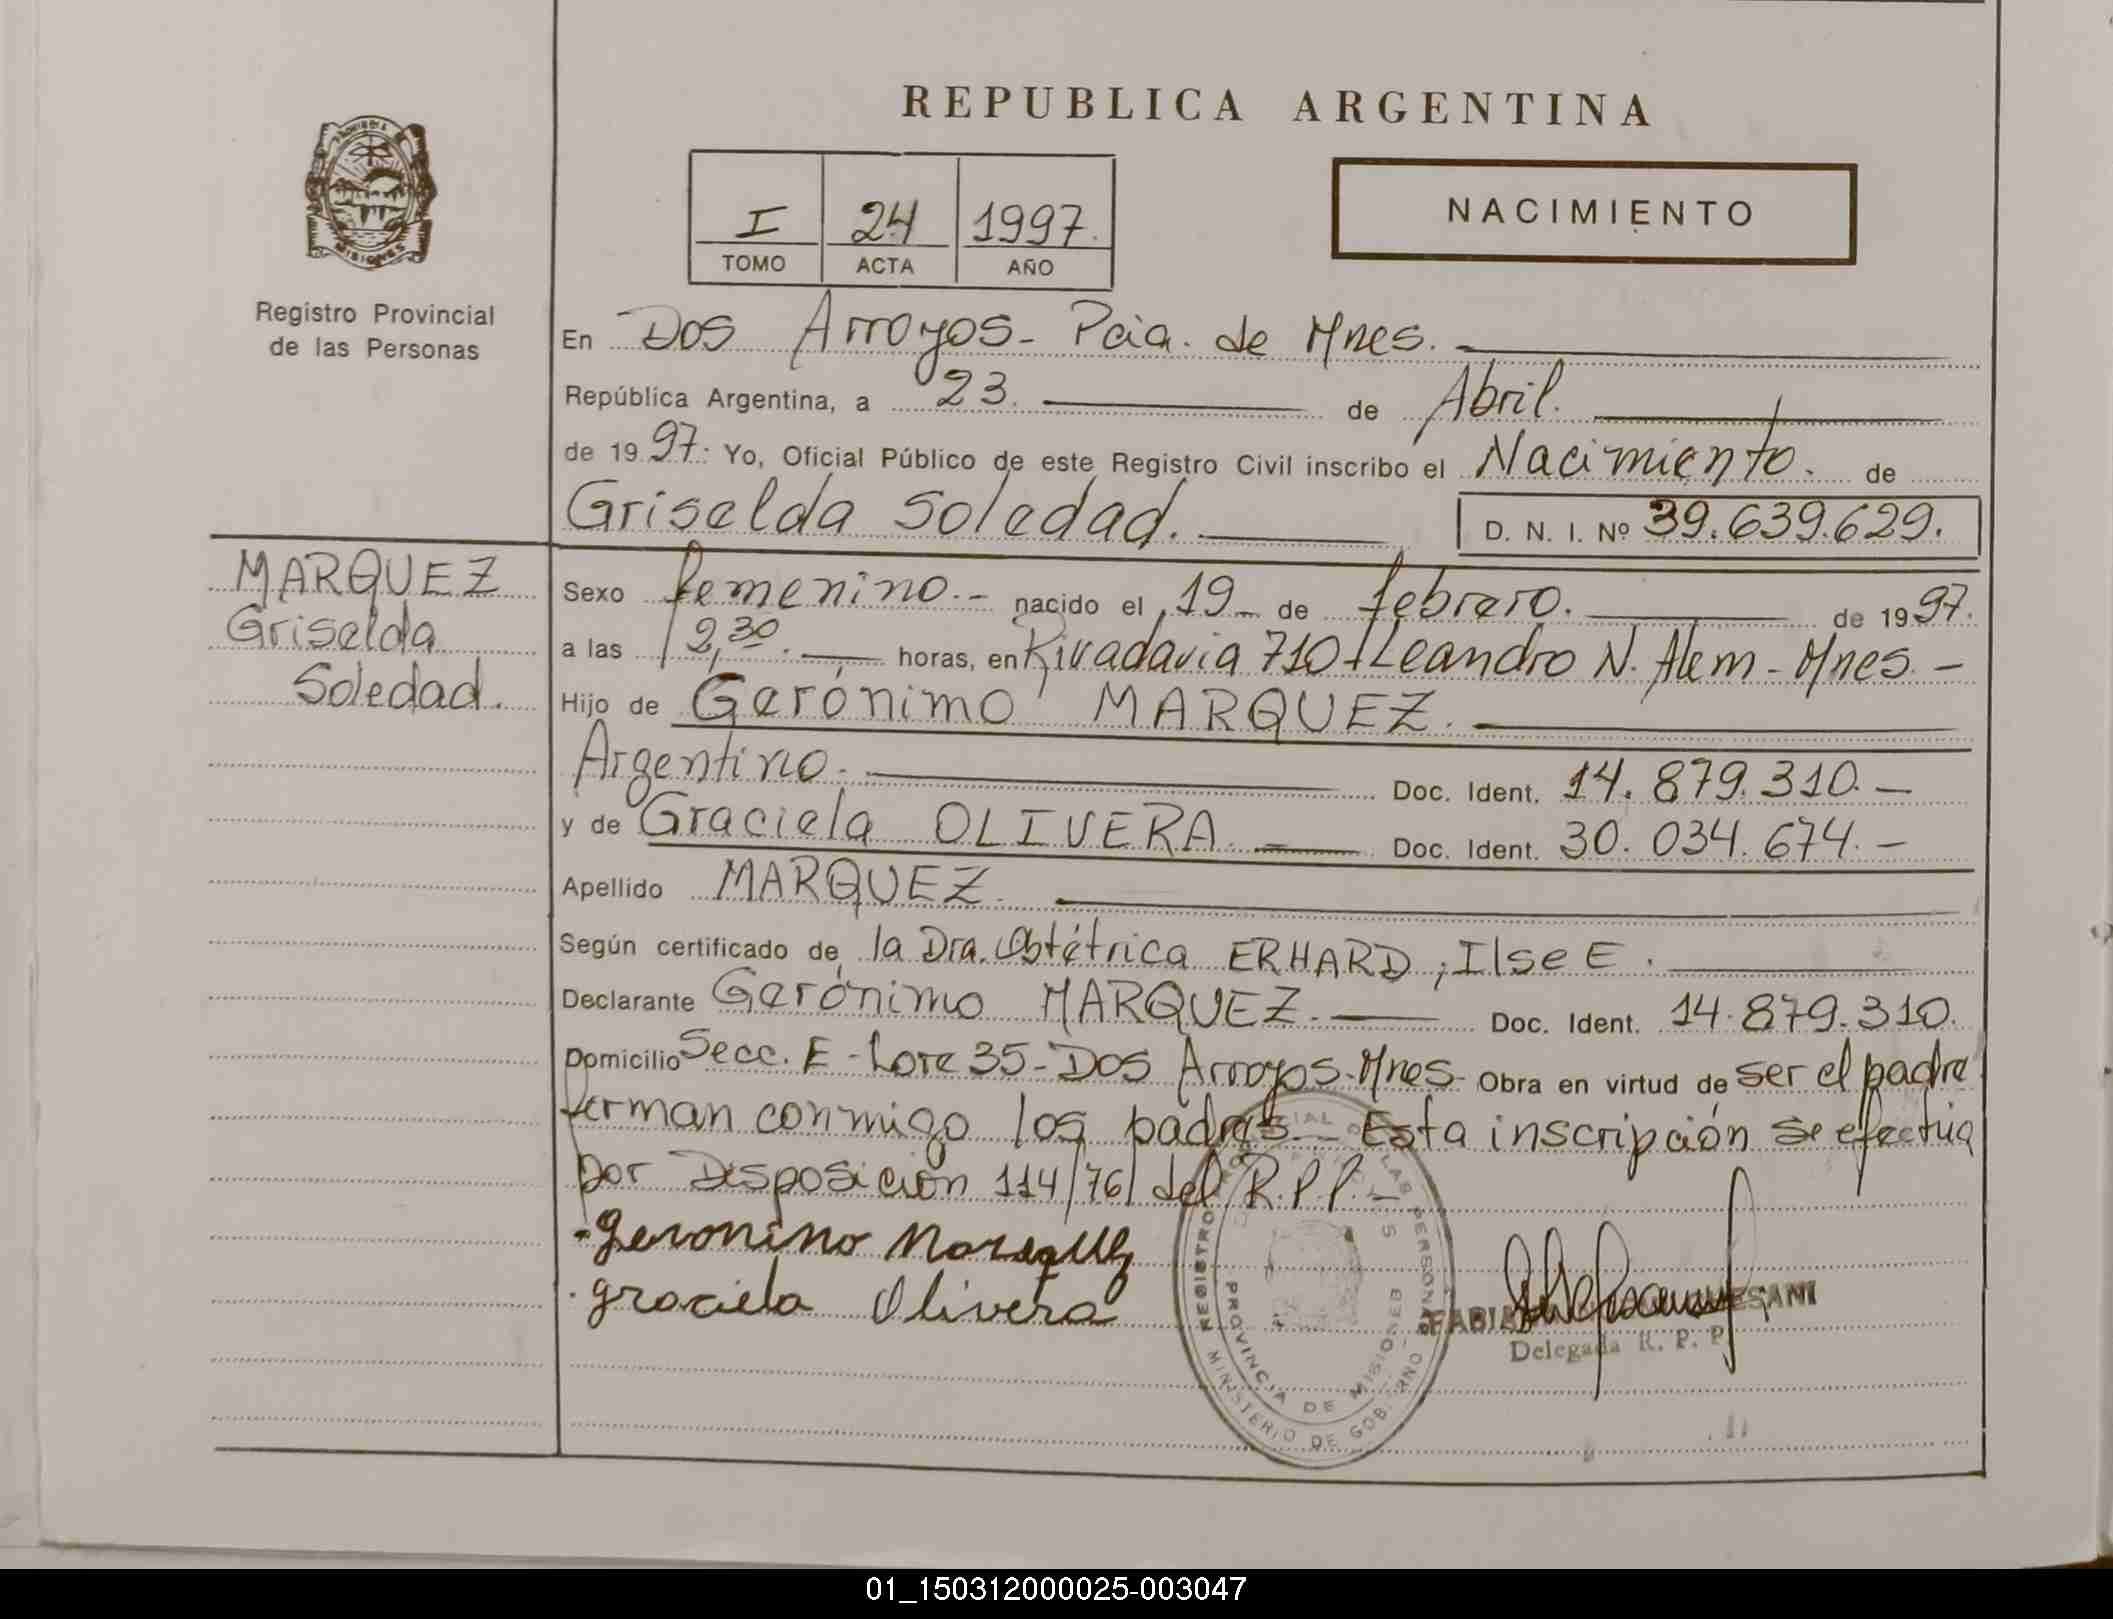 REPUBLICA ARGENTINA
PROVINCIA
MISIONES
Registro Provincial
de las Personas
I 24 1997.
TOMO ACTA AÑO
NACIMIENTO
En Dos Arroyos- Pcia. de Mnes.
República Argentina, a 23. de Abril.
de 1997: Yo, Oficial Público de este Registro Civil inscribo el Nacimiento. de
Griselda Soledad. D. N. I. Nº 39.639.629.
MARQUEZ
Griselda
Soledad.
Sexo femenino.- nacido el 19- de febrero. de 1997.
a las 12,30. horas, en Rivadavia 710-Leandro N. Alem-Mnes.-
Hijo de Gerónimo MARQUEZ.
Argentino. Doc. Ident. 14.879.310.-
y de Graciela OLIVERA. Doc. Ident. 30.034.674.-
Apellido MARQUEZ.
Según certificado de la Dra. Obtétrica ERHARD, Ilse E.
Declarante Gerónimo MARQUEZ. Doc. Ident. 14.879.310.
Domicilio Secc. E-Lote 35-Dos Arroyos-Mnes- Obra en virtud de ser el padre
firman conmigo los padres.- Esta inscripción se efectúa
por Disposición 114/76/ del R.P.P.-
Geronimo Marquez
Graciela Olivera
REGISTRO PROVINCIAL DE LAS PERSONAS
PROVINCIA DE MISIONES
MINISTERIO DE GOBIERNO
Delegada R. P. P.
01_150312000025-003047